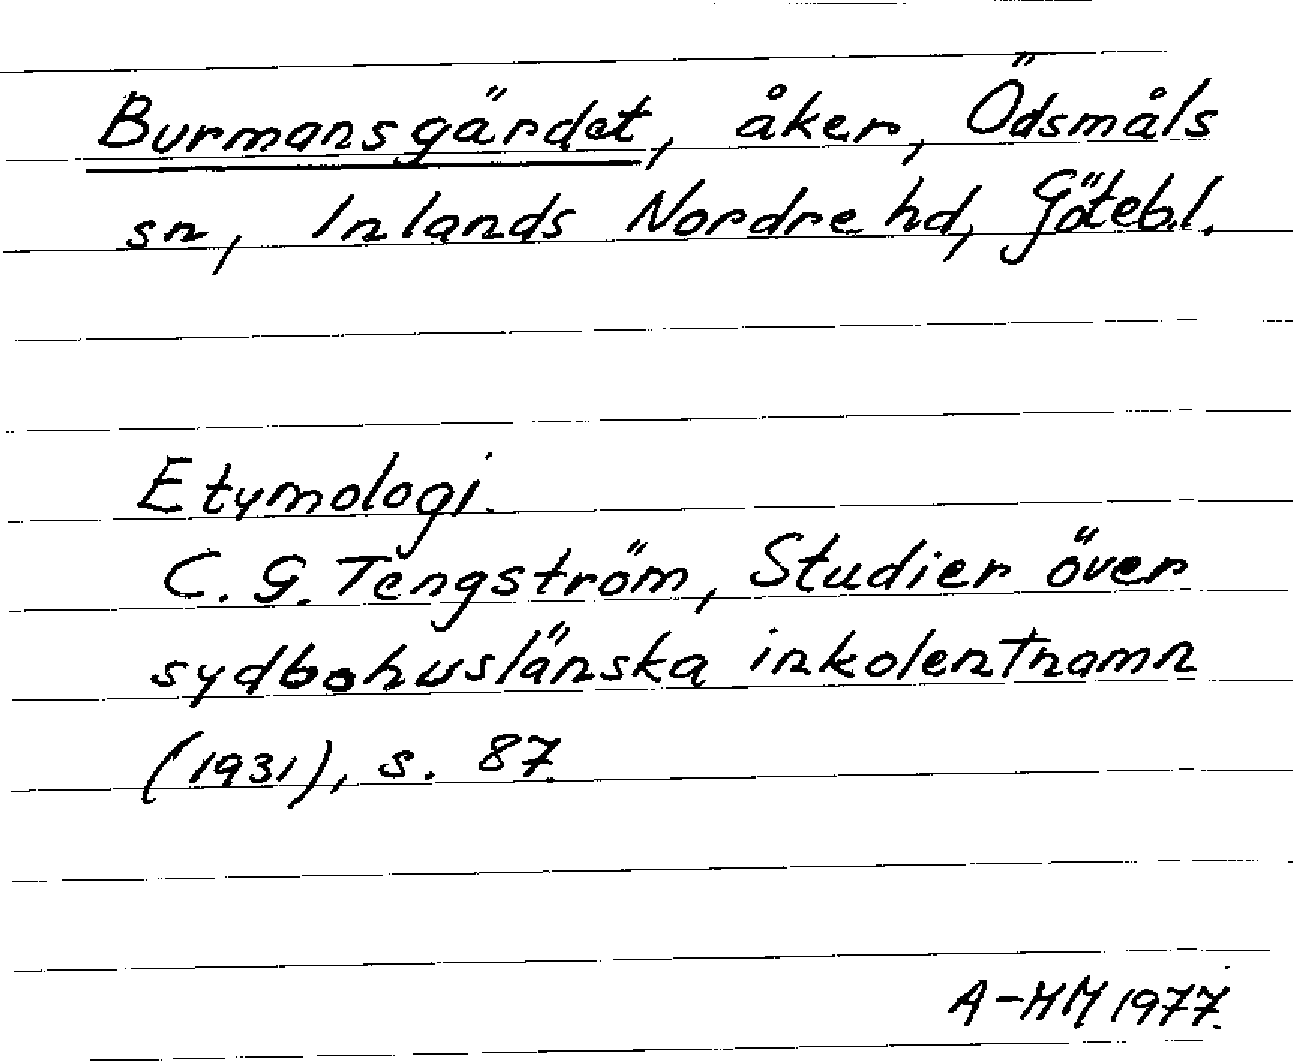 Burmansgärdet, åker, Ödsmåls
sn, Inlands Nordre hd, Göteb.l.
Etymologi.
C. G. Tengström, Studier över
sydbohuslänska inkolentnamn
(1931), s. 87.
A-MM 1977.